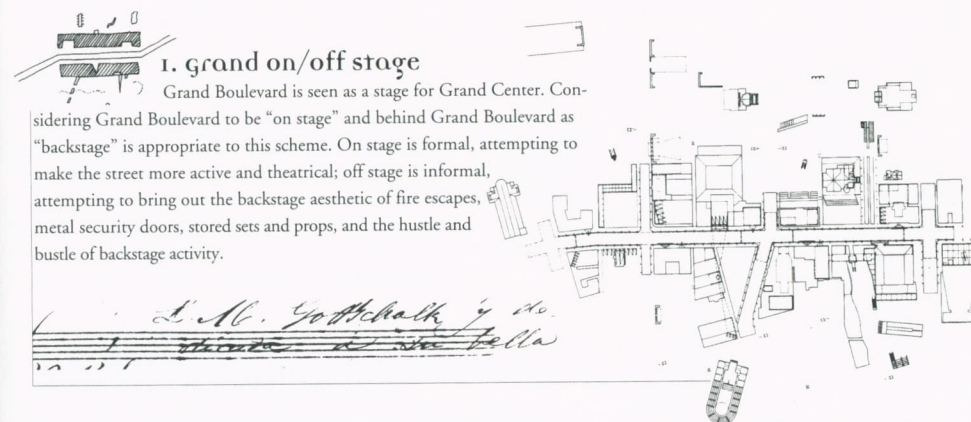 1. grand on/off stage
Grand Boulevard is seen as a stage for Grand Center. Con-
sidering Grand Boulevard to be “on stage” and behind Grand Boulevard as
“backstage” is appropriate to this scheme. On stage is formal, attempting to
make the street more active and theatrical; off stage is informal,
attempting to bring out the backstage aesthetic of fire escapes,
metal security doors, stored sets and props, and the hustle and
bustle of backstage activity.
L. M. Gottschalk y de
a su bella